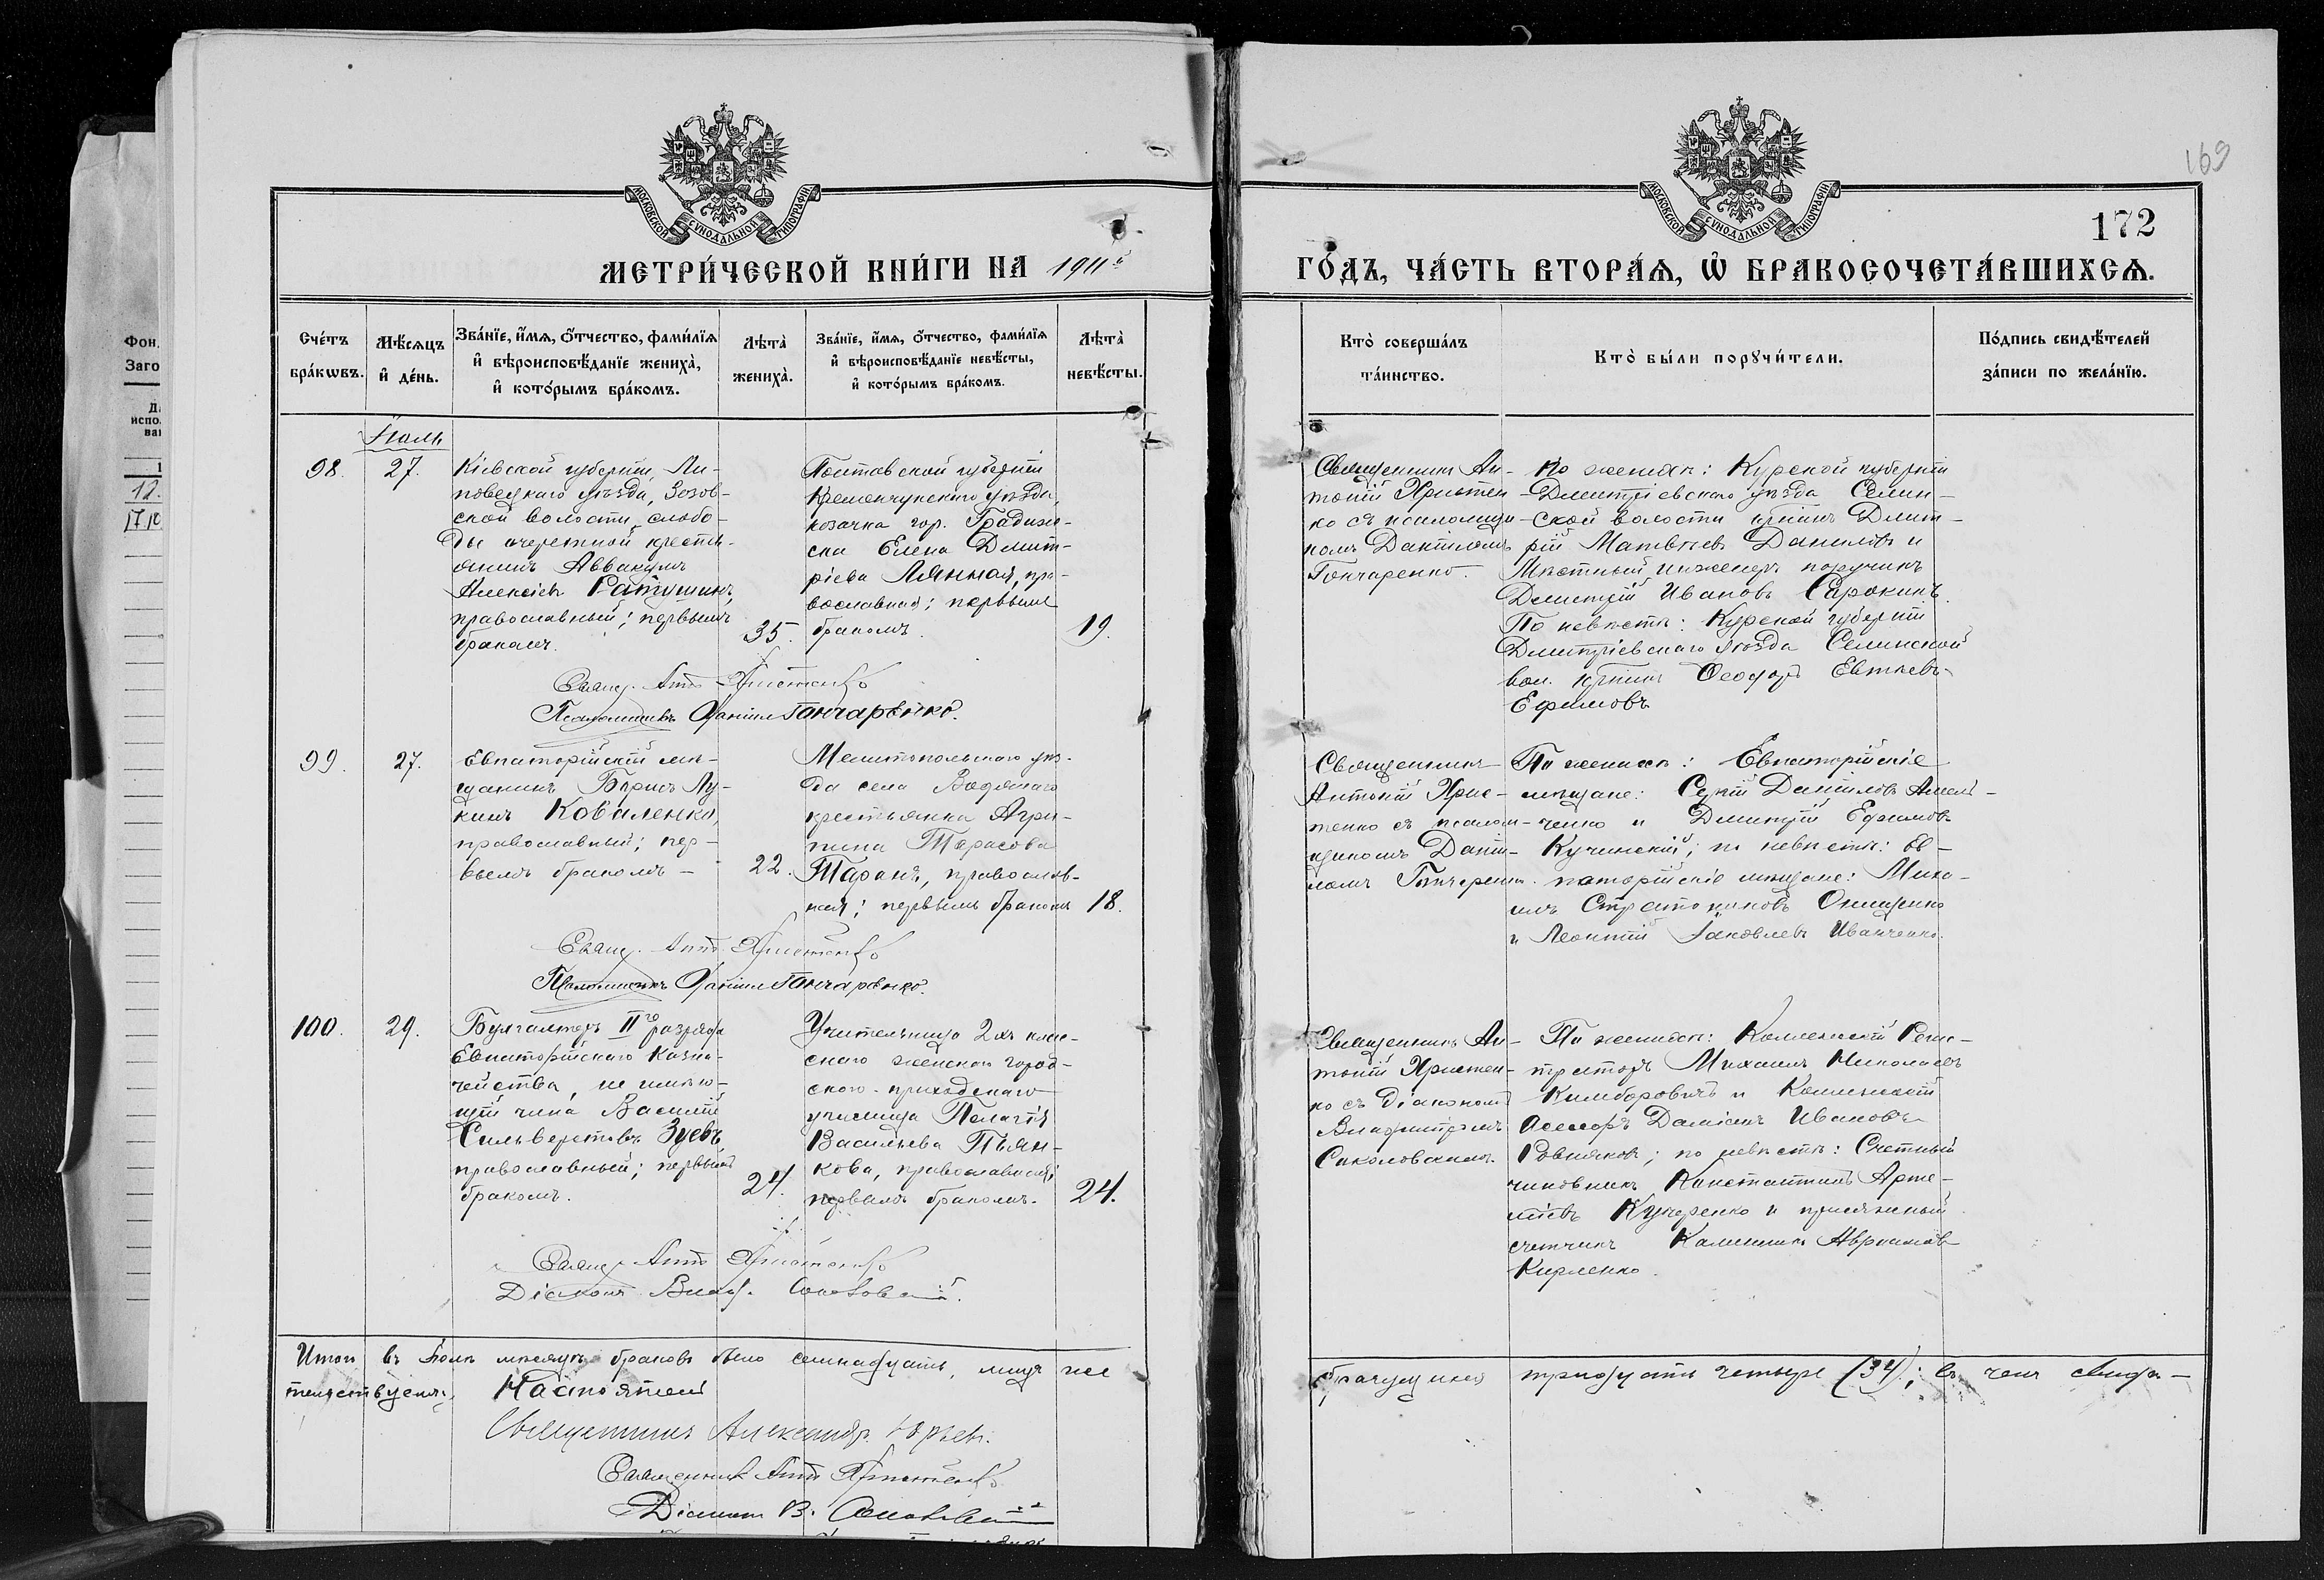 169
172
МОСКОВСКОЙ СѴНОДАЛЬНОЙ ТИПОГРАФІИ
МОСКОВСКОЙ СѴНОДАЛЬНОЙ ТИПОГРАФІИ
МЕТРИ́ЧЕСКОЙ КНИ́ГИ НА 1911й
ГО́ДЪ, ЧА́СТЬ ВТОРА́Ѧ, Ѡ҆ БРАКОСОЧЕТА́ВШИХСѦ.
Фон.
Заго
12.
Сче́тъ бра́кѡвъ.
Мѣ́сѧцъ и҆ де́нь.
Зва́нїе, и҆́мѧ, ѻ҆́тчество, фами́лїѧ
и҆ вѣроисповѣ́данїе жениха̀,
и҆ кото́рымъ бра́комъ.
Лѣта̀ жениха̀.
Зва́нїе, и҆́мѧ, ѻ҆́тчество, фами́лїѧ
и҆ вѣроисповѣ́данїе невѣ́сты,
и҆ кото́рымъ бра́комъ.
Лѣта̀ невѣ́сты.
Кто̀ соверша́лъ
та́инство.
Кто̀ бы́ли порꙋчи́тели.
По́дпись свидѣ́телей
за́писи по жела́нїю.
Іюль
98.
27.
Кіевской губерніи, Ли-
повецкаго уѣзда, Зозов-
ской волости, слобо-
ды очеретной крестья-
нинъ Аввакумъ
Алексіевъ Ратушинъ,
православный; первымъ
бракомъ.
35.
Полтавской губерніи
Кременчугскаго уѣзда,
козачка гор. Градиж-
ска Елена Димит-
ріева Лянная, пра-
вославная; первымъ
бракомъ.
19.
Священникъ Ан-
тоній Христен-
ко съ псаломщи-
комъ Даніиломъ
Гончаренко.
По женихѣ: Курской губерніи
Дмитріевскаго уѣзда Селин-
ской волости кр-нинъ Димит-
рій Матвѣевъ Даниловъ и
Мѣстный инженеръ поручикъ
Димитрій Ивановъ Сорокинъ.
По невѣстѣ: Курской губерніи
Дмитріевскаго уѣзда Селинской
вол. кр-нинъ Ѳеодоръ Евтѣевъ
Ефимовъ
Свящ. Ант. Христенко
Псаломщикъ Даніилъ Гончаренко.
99.
27.
Евпаторійскій мѣ-
щанинъ Борисъ Лу-
кинъ Коваленко,
православный; пер-
вымъ бракомъ -
22.
Мелитопольскаго уѣз-
да села Водянаго
крестьянка Агри-
пина Тарасова
Таранъ, православ-
ная; первымъ бракомъ
18.
Священникъ
Антоній Хрис-
тенко съ псалом-
щикомъ Дані-
ломъ Гончаренко.
По женихѣ: Евпаторійскіе
мѣщане: Сергій Даніиловъ Амель-
ченко и Димитрій Ефимовъ
Кучинскій; по невѣстѣ: Ев-
паторійскіе мѣщане: Миха-
илъ Стратониковъ Онищенко
и Леонтій Іаковлевъ Иванченко.
Свящ. Ант. Христенко
Псаломщикъ Даніилъ Гончаренко.
100.
29.
Бухгалтеръ IIго разряда
Евпаторійскаго Казна-
чейства, не имѣю-
щій чина Василій
Сильверстовъ Зуевъ,
православный; первымъ
бракомъ.
24.
Учительница 2хъ клас-
снаго женскаго город-
ского приходскаго
училища Пелагія
Васильева Пьян-
кова, православная;
первымъ бракомъ.
24.
Священникъ Ан-
тоній Христен-
ко съ діакономъ
Владиміромъ
Соколовскимъ.
По женихѣ: Коллежскій Реги-
страторъ Михаилъ Николаевъ
Кимборовичъ и Коллежскій
Асессоръ Даміанъ Ивановъ
Ровняковъ; по невѣстѣ: Счетный
чиновникъ Константинъ Арте-
міевъ Кучеренко и присяжный
счетчикъ Каллиникъ Авраамовъ
Кириленко.
Свящ. Ант. Христенко
Діаконъ Влад. Соколовскій.
Итого въ Іюлѣ мѣсяцѣ браковъ было семнадцать, лицъ же
брачущихся тридцать четыре (34); въ чемъ свидѣ-
тельствуемъ: Настоятель
Священникъ Александръ Юрьевъ.
Священникъ Ант. Христенко
Діаконъ В. Соколовскій